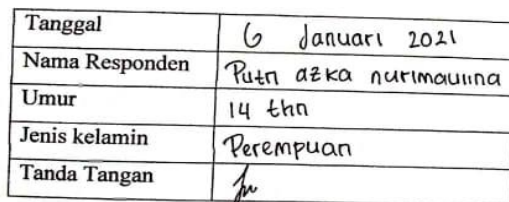 Tanggal 6 Januari 2021
Nama Responden Putri azka nurimaulina
Umur 14 thn
Jenis kelamin Perempuan
Tanda Tangan